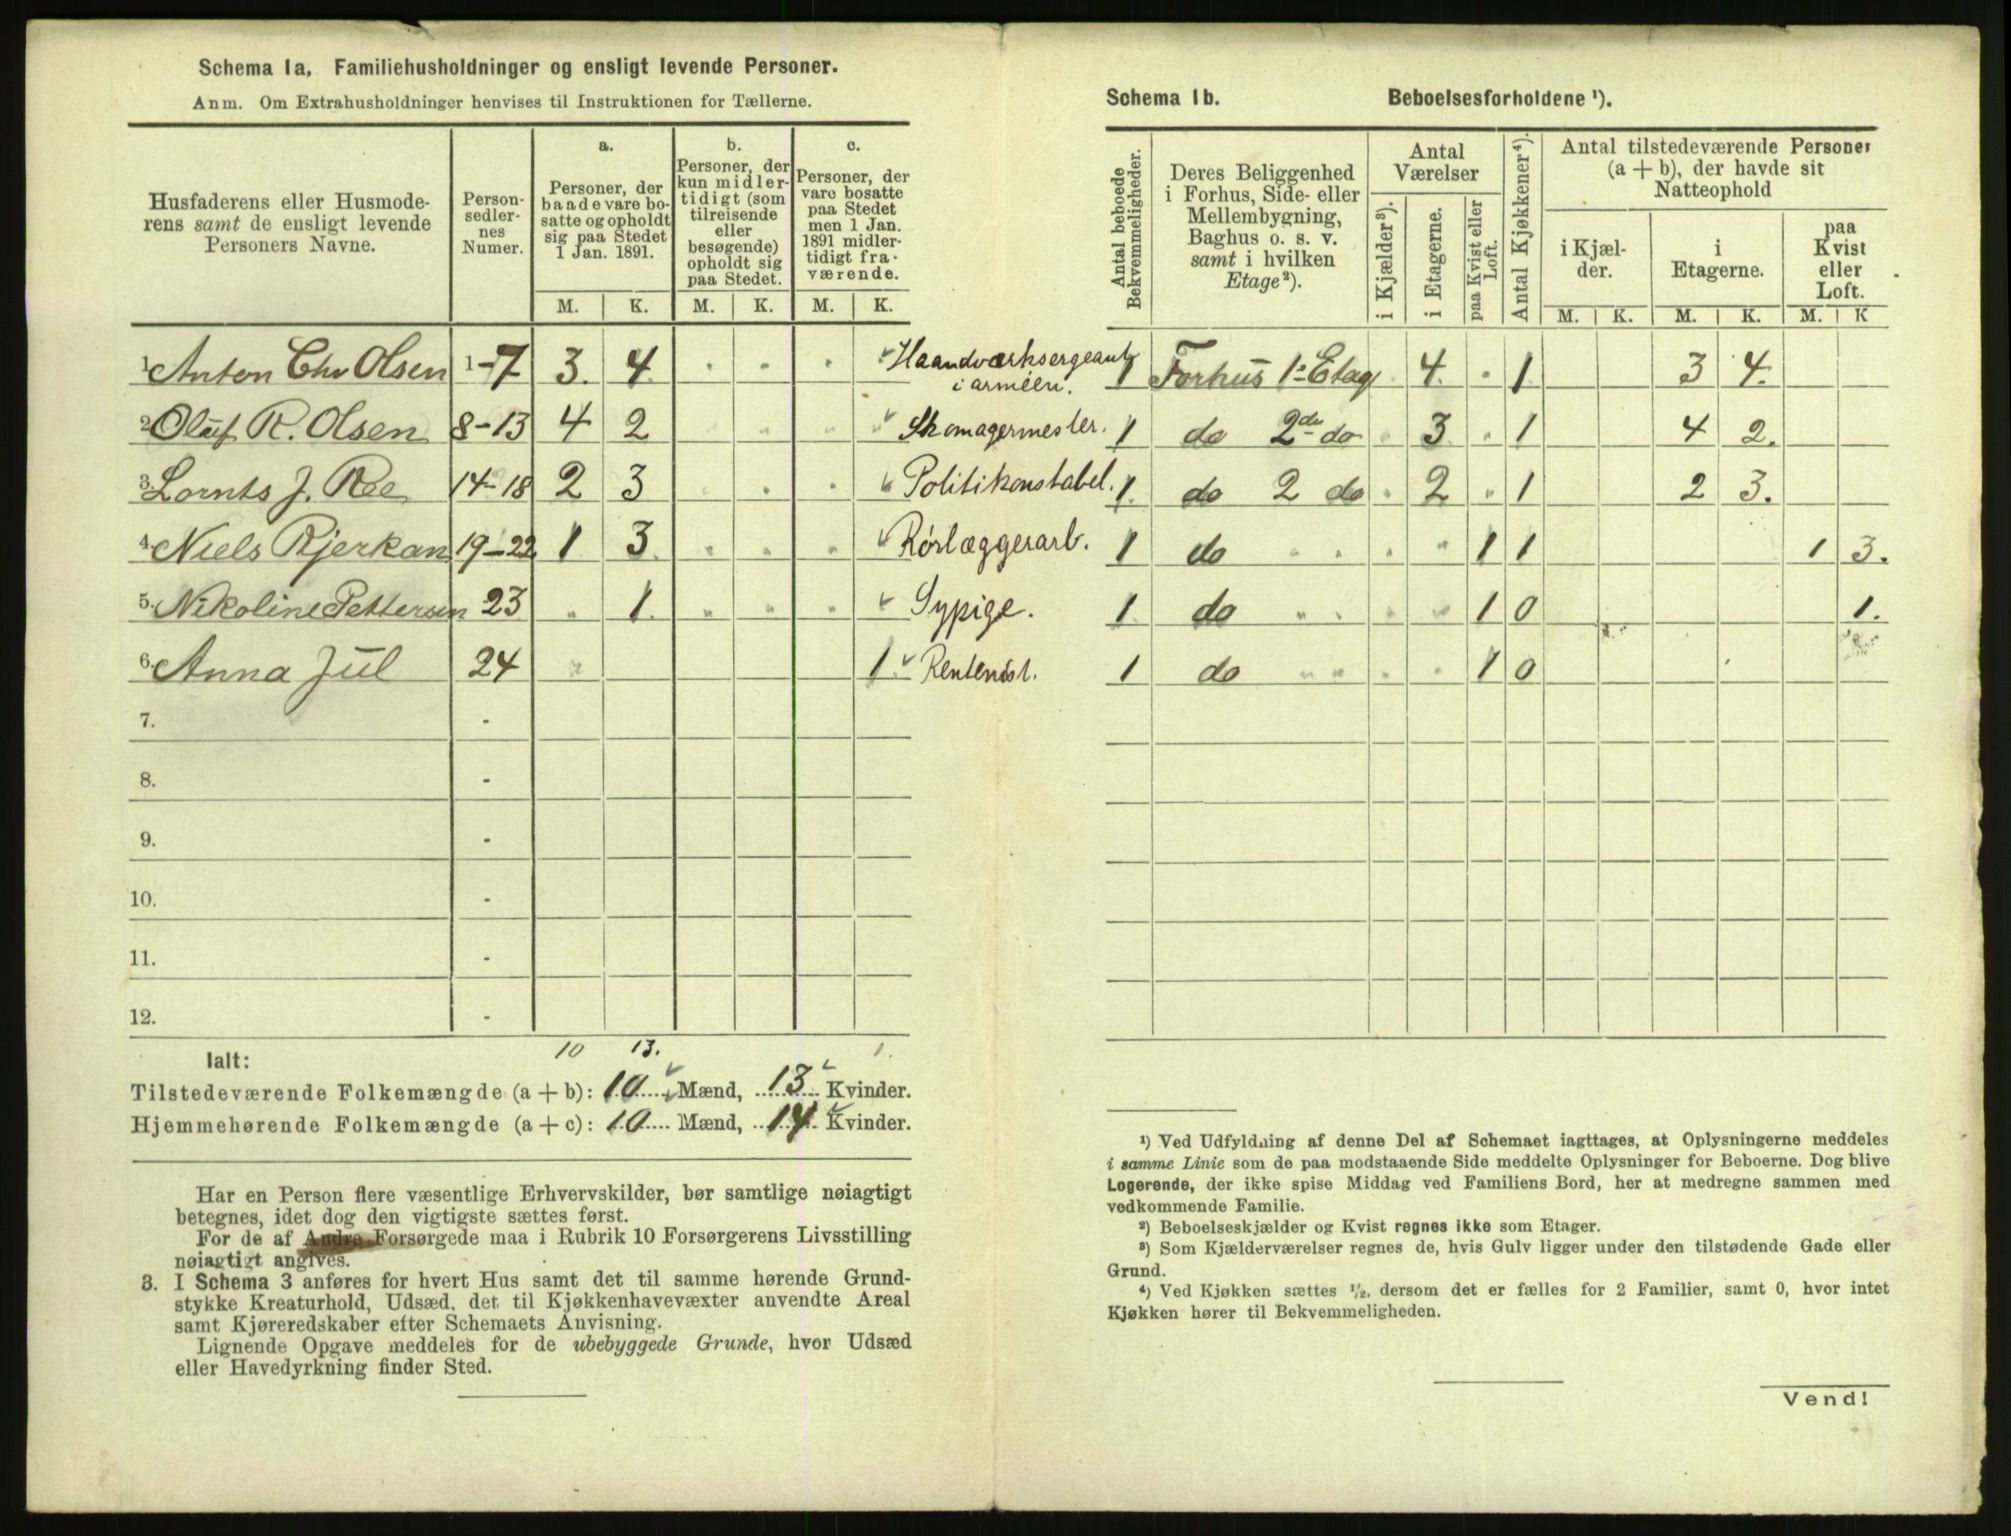 Schema 1a, Familiehusholdninger og ensligt levende Personer.
Anm. Om Extrahusholdninger henvises til Instruktionen for Tællerne.
Husfaderens eller Husmoderens samt de ensligt levende Personers Navne.
Personsedlernes Numer.
a. Personer, der baade vare bosatte og opholdt sig paa Stedet 1 Jan. 1891.
b. Personer, der kun midlertidigt (som tilreisende eller besøgende) opholdt sig paa Stedet.
c. Personer, der vare bosatte paa Stedet men 1 Jan. 1891 midlertidigt fraværende.
M. K. M. K. M. K.
1 Anton Chr Olsen 1-7 3. 4 Haandværksergeant i arméen.
2 Oluf R. Olsen 8-13 4 2 Skomagermester.
3. Lornts J. Ree 14-18 2 3 Politikonstabel.
4. Niels Rjerkan 19-22 1 3. Rörlæggerarb.
5. Nikoline Pettersen 23 " 1. Sypige.
6. Anna Jül 24 1. Rentenist.
7. -
8. -
9. -
10. -
11. -
12. -
Ialt: 10 13. 1.
Tilstedeværende Folkemængde (a + b): 10 Mænd, 13 Kvinder.
Hjemmehørende Folkemængde (a + c): 10 Mænd, 14 Kvinder.
Har en Person flere væsentlige Erhvervskilder, bør samtlige nøiagtigt
betegnes, idet dog den vigtigste sættes først.
For de af Andre Forsørgede maa i Rubrik 10 Forsørgerens Livsstilling
nøiagtigt angives.
3. I Schema 3 anføres for hvert Hus samt det til samme hørende Grund-
stykke Kreaturhold, Udsæd, det til Kjøkkenhavevæxter anvendte Areal
samt Kjøreredskaber efter Schemaets Anvisning.
Lignende Opgave meddeles for de ubebyggede Grunde, hvor Udsæd
eller Havedyrkning finder Sted.
Schema 1b. Beboelsesforholdene ¹).
Antal beboede Bekvemmeligheder.
Deres Beliggenhed i Forhus, Side- eller Mellembygning, Baghus o. s. v. samt i hvilken Etage²).
Antal Værelser
i Kjælder³).
i Etagerne.
paa Kvist eller Loft.
Antal Kjøkkener⁴).
Antal tilstedeværende Personer (a + b), der havde sit Natteophold
i Kjælder. i Etagerne. paa Kvist eller Loft.
M. K. M. K. M. K
1 Forhus 1ª Etag 4. " 1 3 4.
1 do 2den do " 3 " 1 4 2.
1. do 2 do " 2 " 1 2 3.
1 do " " " " 1 1 1 3.
1 do " " " " 1 0 1.
1 do " " " " 1 0
¹) Ved Udfyldning af denne Del af Schemaet iagttages, at Oplysningerne meddeles
i samme Linie som de paa modstaaende Side meddelte Oplysninger for Beboerne. Dog blive
Logerende, der ikke spise Middag ved Familiens Bord, her at medregne sammen med
vedkommende Familie.
²) Beboelseskjælder og Kvist regnes ikke som Etager.
³) Som Kjælderværelser regnes de, hvis Gulv ligger under den tilstødende Gade eller
Grund.
⁴) Ved Kjøkken sættes ½, dersom det er fælles for 2 Familier, samt 0, hvor intet
Kjøkken hører til Bekvemmeligheden.
Vend!